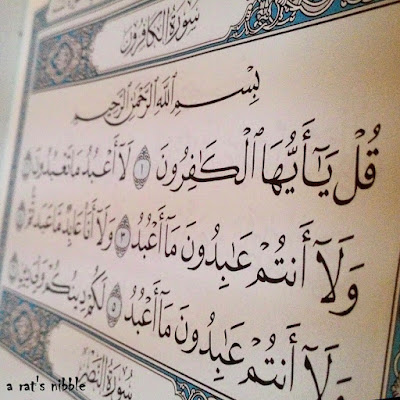 سُورَةُ الكَافِرُونَ
بِسْمِ ٱللَّهِ ٱلرَّحْمَٰنِ ٱلرَّحِيمِ
قُلْ يَٰٓأَيُّهَا ٱلْكَٰفِرُونَ ١ لَآ أَعْبُدُ مَا تَعْبُدُونَ ٢
وَلَآ أَنتُمْ عَٰبِدُونَ مَآ أَعْبُدُ ٣ وَلَآ أَنَا۠ عَابِدٌ مَّا عَبَدتُّمْ ٤
وَلَآ أَنتُمْ عَٰبِدُونَ مَآ أَعْبُدُ ٥ لَكُمْ دِينُكُمْ وَلِىَ دِينِ ٦
سُورَةُ النَّصْرِ
a rat's nibble